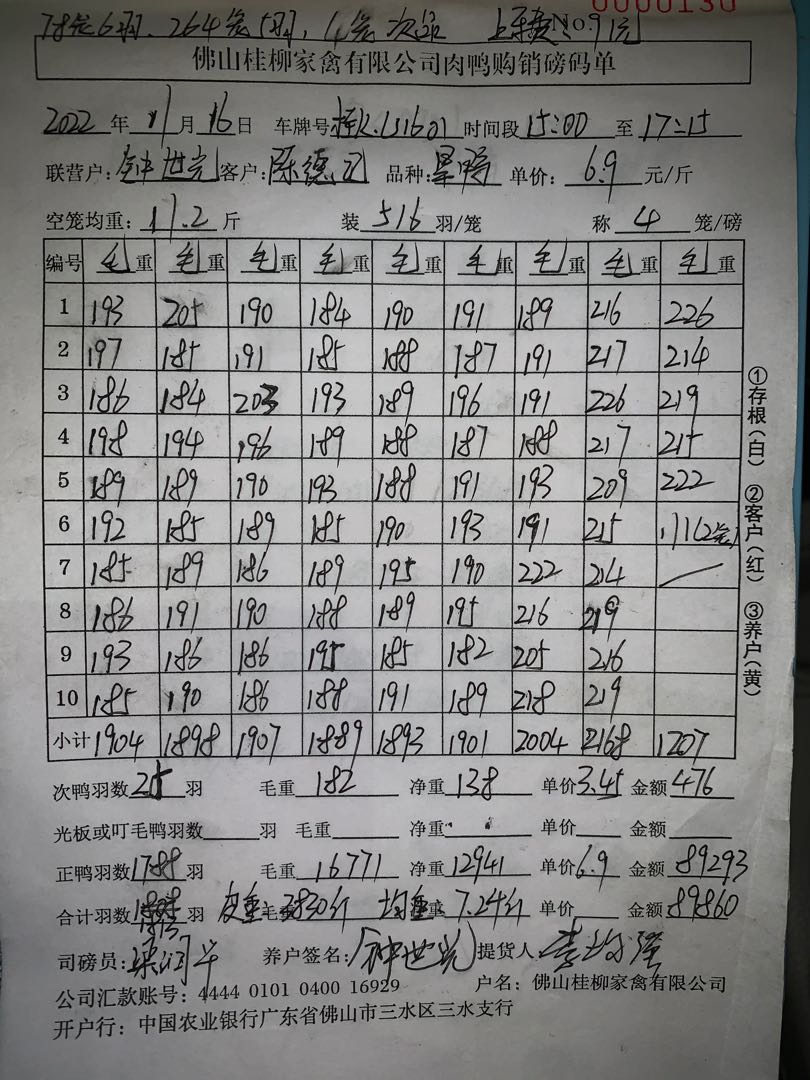 0000130
78笼6羽、264笼5羽、4笼次品 上车费 No.91元
佛山桂柳家禽有限公司肉鸭购销磅码单
2022 年 11 月 16 日 车牌号 时间段 15:00 至 17:15
联营户: 钟世光 客户: 陈德 品种: 单价: 6.9 元/斤
空笼均重: 11.2 斤 装 516 羽/笼 称 4 笼/磅
编号 毛重 毛重 毛重 毛重 毛重 毛重 毛重 毛重 毛重
1 193 205 190 184 190 191 189 216 226
2 197 185 191 185 188 187 191 217 214
3 186 184 203 193 189 196 191 226 219
4 198 194 196 189 188 187 188 217 215
5 189 189 190 193 188 191 193 209 222
6 192 185 189 185 190 193 191 215 111(2笼)
7 185 189 186 189 195 190 222 214
8 186 191 190 188 189 195 216 219
9 193 186 186 195 185 182 205 216
10 185 190 186 188 191 189 218 219
小计 1904 1898 1907 1889 1893 1901 2004 2168 1207
次鸭羽数 25 羽 毛重 182 净重 138 单价 3.45 金额 476
光板或叮毛鸭羽数 羽 毛重 净重 单价 金额
正鸭羽数 1788 羽 毛重 16771 净重 12941 单价 6.9 金额 89293
合计羽数 1813 羽 皮重 3830斤 均重 7.24斤 单价 金额 89860
司磅员: 养户签名: 钟世光 提货人
公司汇款账号: 4444 0101 0400 16929 户名: 佛山桂柳家禽有限公司
开户行: 中国农业银行广东省佛山市三水区三水支行
①存根(白) ②客户(红) ③养户(黄)